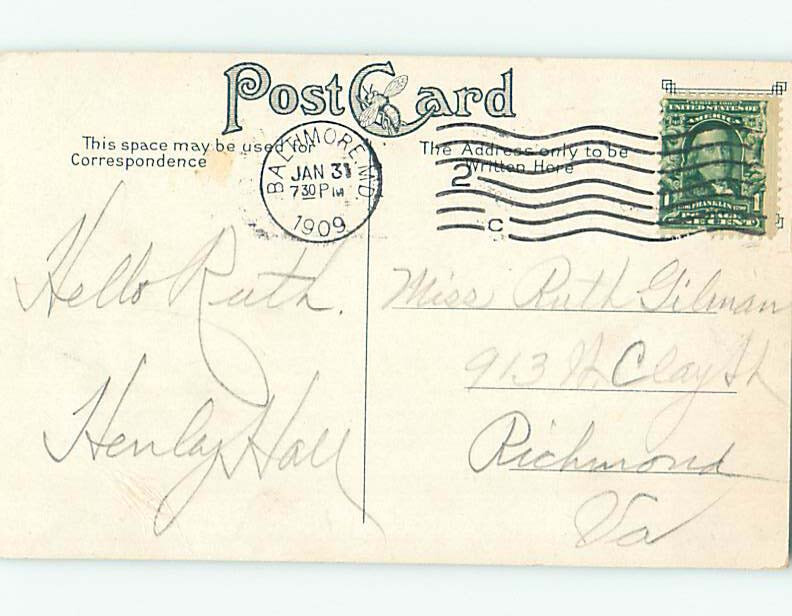 Post Card
This space may be used for
Correspondence
The Address only to be
Written Here
BALTIMORE, MD.
JAN 31
7 30 PM
1909
2
C
SERIES 1902
UNITED STATES OF
AMERICA
1 FRANKLIN 1
POSTAGE
ONE CENT
Hello Ruth.
Henley Hall
Miss Ruth Gilman
913 N. Clay St
Richmond
Va